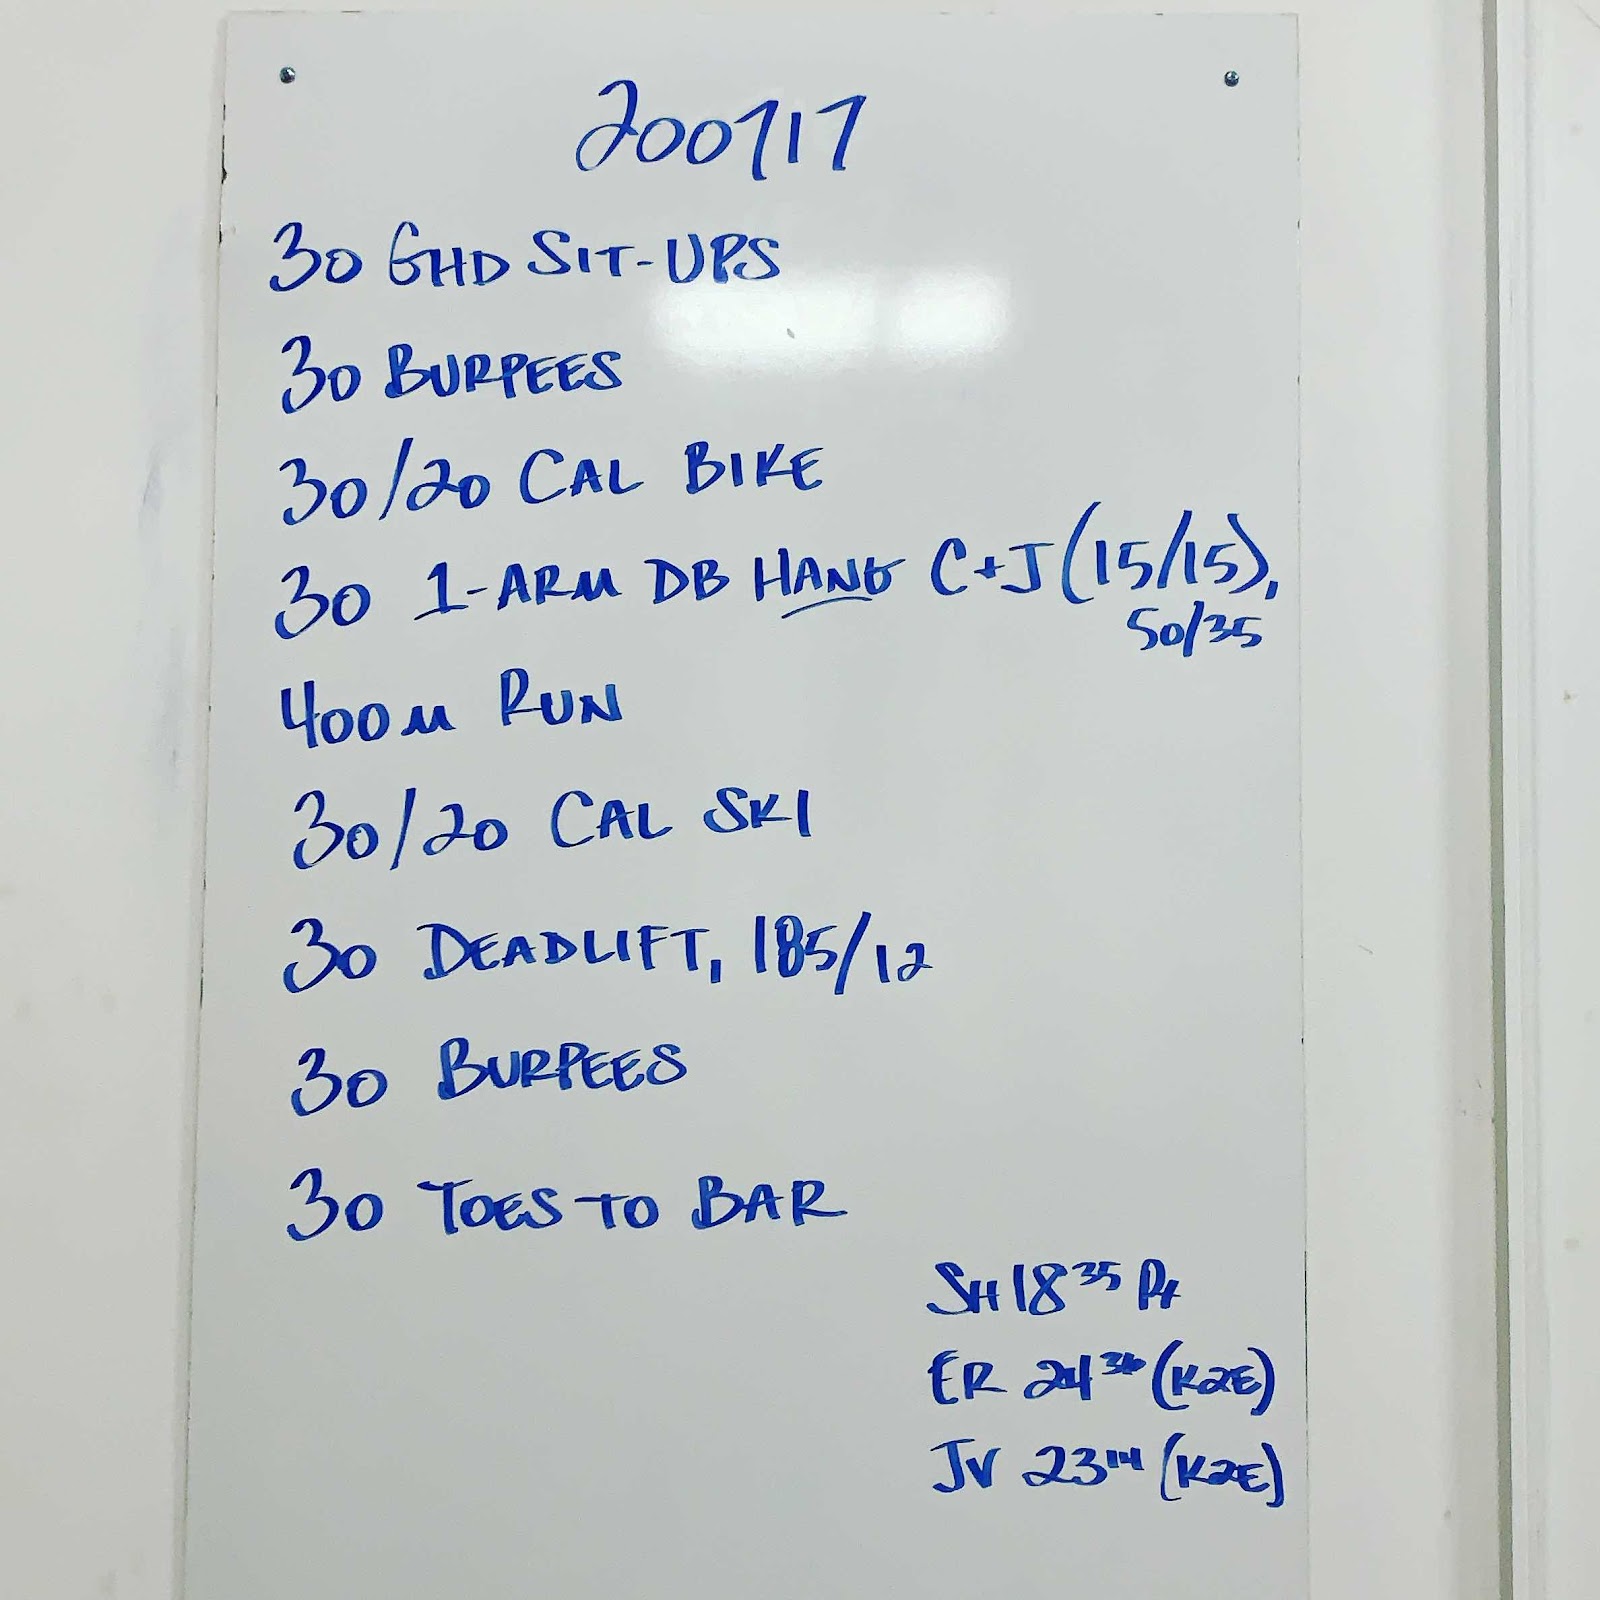 200717
30 GHD SIT-UPS
30 BURPEES
30/20 CAL BIKE
30 1-ARM DB HANG C+J (15/15),
50/35
400M RUN
30/20 CAL SKI
30 DEADLIFT, 185/12
30 BURPEES
30 TOES TO BAR
SH 18 35 Rx
ER 24 36 (K2E)
JV 23 14 (K2E)